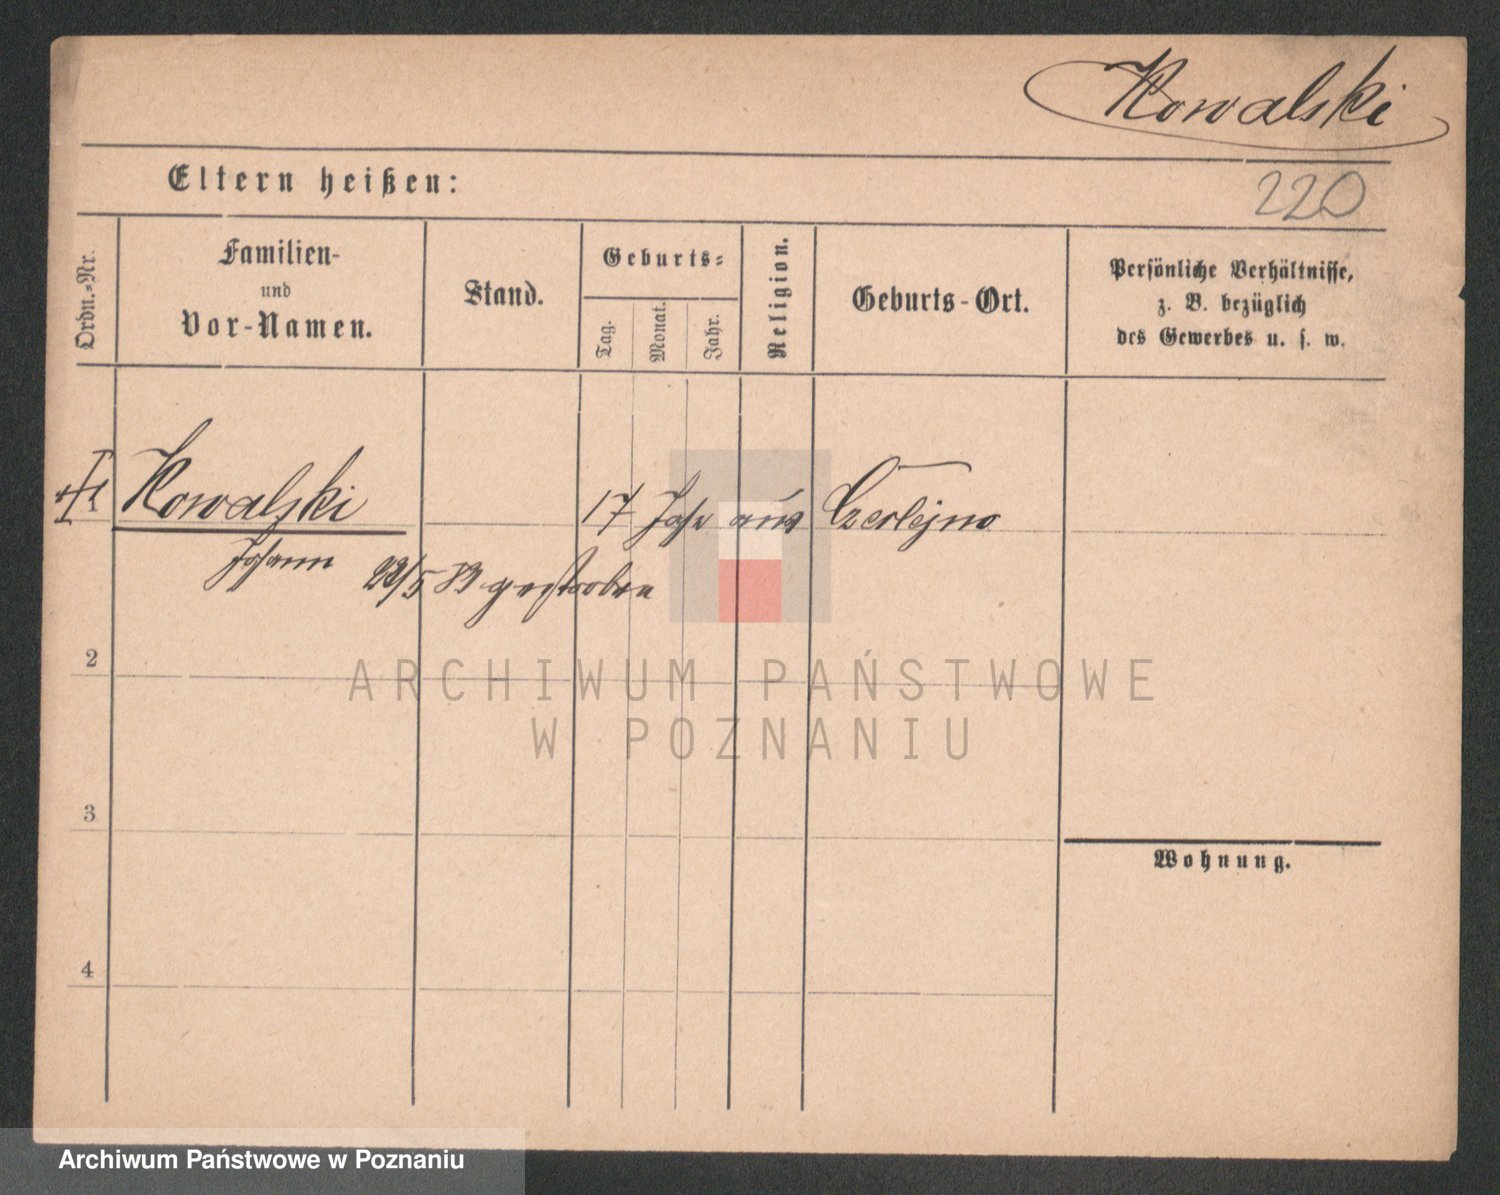 Kowalski
Eltern heißen:
220
Ordn.-Nr.
Familien-
und
Vor-Namen.
Stand.
Geburts-
Tag.
Monat.
Jahr.
Religion.
Geburts-Ort.
Persönliche Verhältnisse,
z. B. bezüglich
des Gewerbes u. s. w.
1 Kowalski 17 Jahr aus Czerlejno
Johann 22/5 83 gestorben
2
ARCHIWUM PAŃSTWOWE
W POZNANIU
3
Wohnung.
4
Archiwum Państwowe w Poznaniu